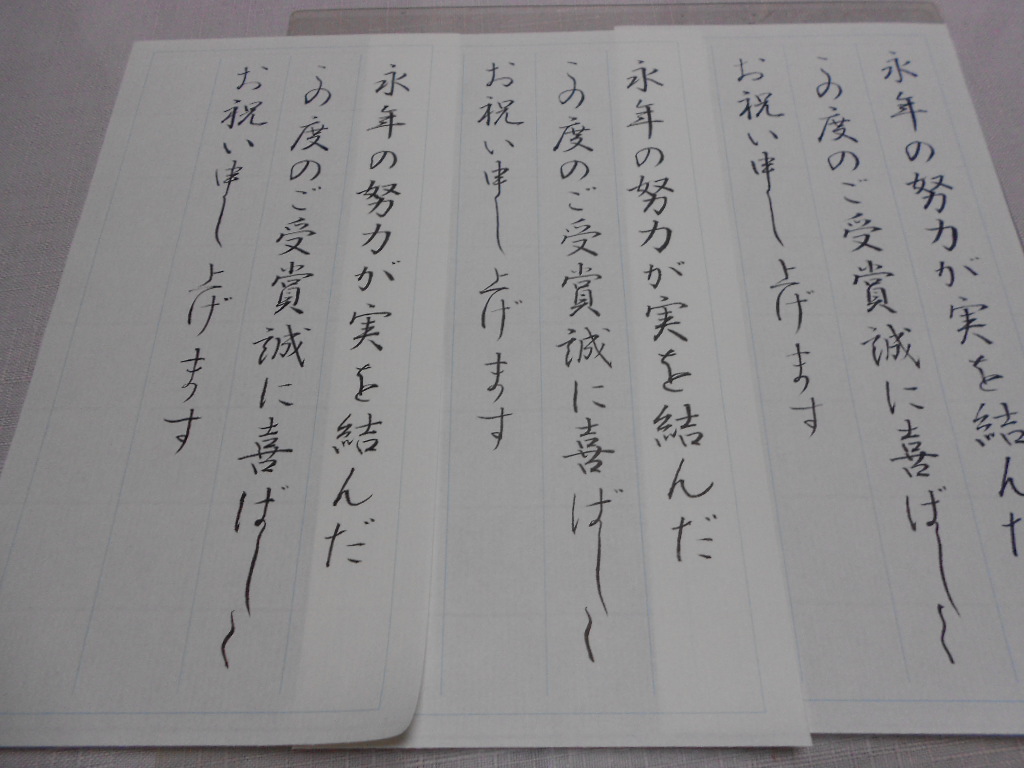 永年の努力が実を結んだ
この度のご受賞誠に喜ばしく
お祝い申し上げます
永年の努力が実を結んだ
この度のご受賞誠に喜ばしく
お祝い申し上げます
永年の努力が実を結んだ
この度のご受賞誠に喜ばしく
お祝い申し上げます